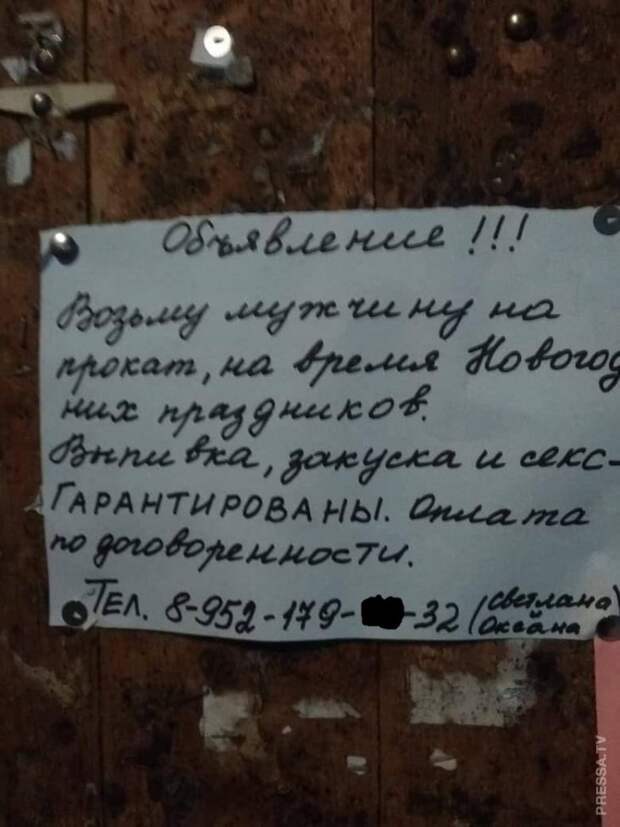 Объявление !!!
Возьму мужчину на
прокат, на время Новогод
них праздников.
Выпивка, закуска и секс-
ГАРАНТИРОВАНЫ. Оплата
по договоренности.
ТЕЛ. 8-952-179- -32 (Светлана)
Оксана
PRESSA.TV